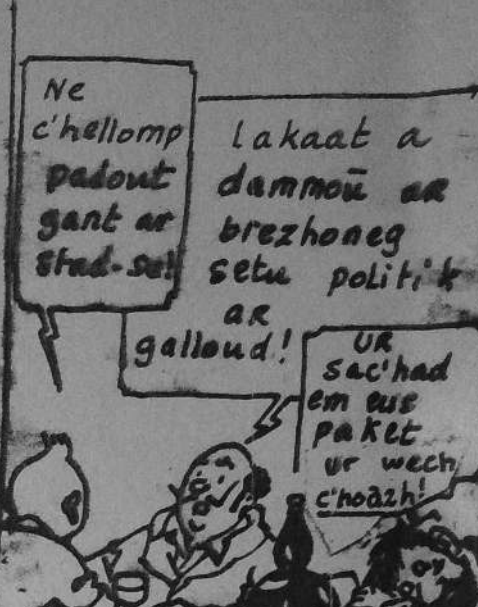 Ne
c'hellomp
padout
gant ar
stad-se!
lakaat a
dammoù ar
brezhoneg
setu politik
ar
galloud!
UR
sac'had
em eus
paket
ur wech
c'hoazh!